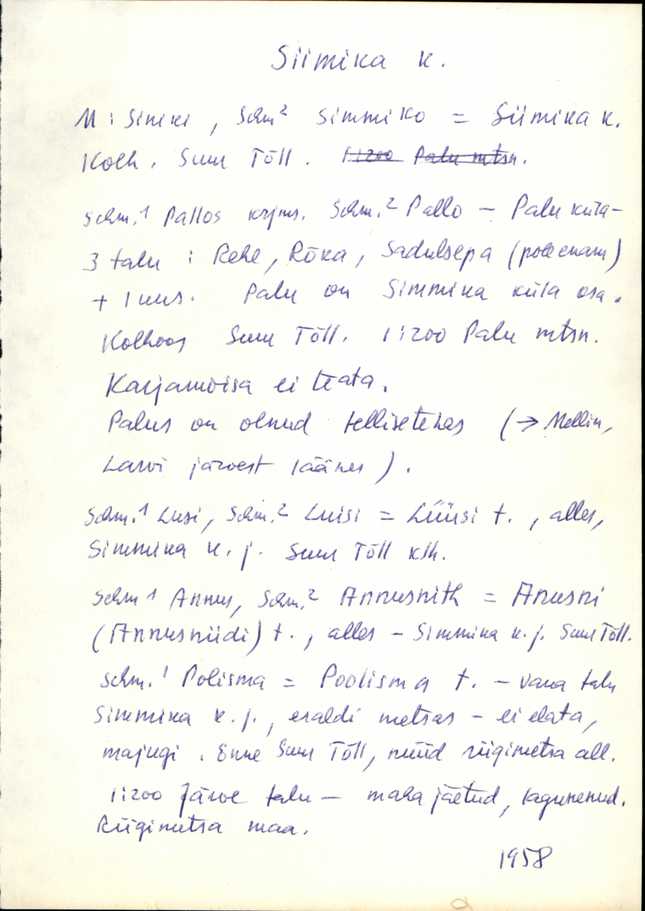 Siimika k.
M: Simki, Schm² Simmiko = Siimika k.
Kolh. Suur Tõll. 1:200 Palu mtsn.
Schm.¹ Pallos krjms. Schm.² Pallo – Palu küla-
3 talu: Rehe, Rõka, Sadulsepa (poolenam)
+ 1 uus. Palu on Simmika küla osa.
Kolhoos Suur Tõll. 1:200 Palu mtsn.
Karjamõisa ei teata.
Palus on olnud tellisetehas (→ Mellin,
Larvi järvest läänes).
Schm.¹ Lusi, Schm.² Luisi = Lüüsi t., alles,
Simmika k. j. Suur Tõll klh.
Schm¹ Annus, Schm.² Annusnith = Anusni
(Annusniidi) t., alles – Simmika k. j. Suur Tõll.
Schm.¹ Polisma = Poolisma t. – vana talu
Simmika k. j., eraldi metsas – ei elata,
majugi. Enne Suur Tõll, nüüd riigimetsa all.
1:200 Järve talu – maha jäetud, lagunenud.
Riigimetsa maa.
1958